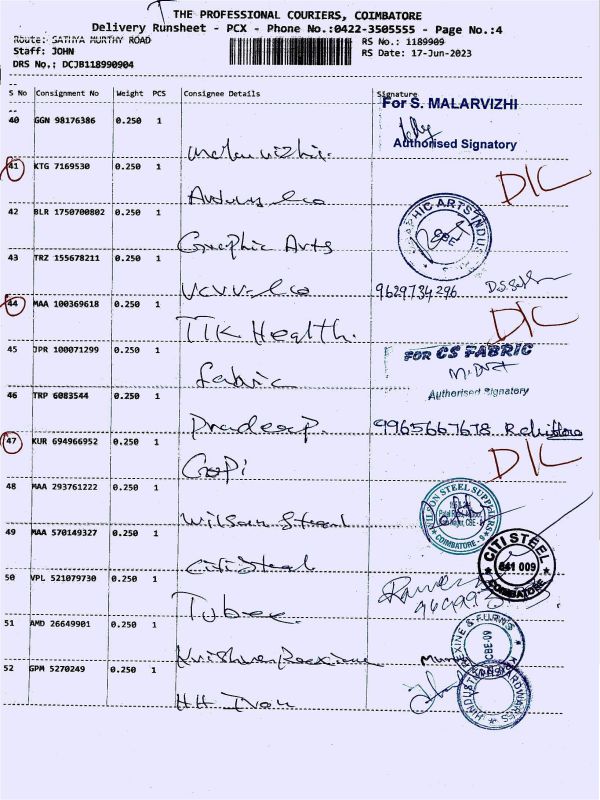 THE PROFESSIONAL COURIERS, COIMBATORE
Delivery Runsheet - PCX - Phone No.:0422-3505555 - Page No.:4
Route: SATHYA MURTHY ROAD RS No.: 1189909
Staff: JOHN RS Date: 17-Jun-2023
DRS No.: DCJB118990904
S No Consignment No Weight PCS Consignee Details Signature
For S. MALARVIZHI
40 GGN 98176386 0.250 1
Authorised Signatory
Malarvizhi.
41 KTG 7169530 0.250 1 D/C
42 BLR 1750700802 0.250 1
GRAPHIC ARTS INDUS CBE
Graphic Arts
43 TRZ 155678211 0.250 1
9629734296
44 MAA 100369618 0.250 1 D/C
TTK Health.
45 JPR 100071299 0.250 1
FOR CS FABRIC
fabric
Authorised Signatory
46 TRP 6083544 0.250 1
Pradeep. 9965667678
47 KUR 694966952 0.250 1 D/C
Gopi
48 MAA 293761222 0.250 1
WILSON STEEL SUPPLIERS COIMBATORE
Wilson Steel
49 MAA 570149327 0.250 1
CITI STEEL 641 009
Citi Steel
50 VPL 521079730 0.250 1
Tubee.
51 AMD 26649901 0.250 1
REXINE & FURNIS CBE-09
Krishna Rexine
52 GPM 5270249 0.250 1
HINDUSTAN HARDWARES